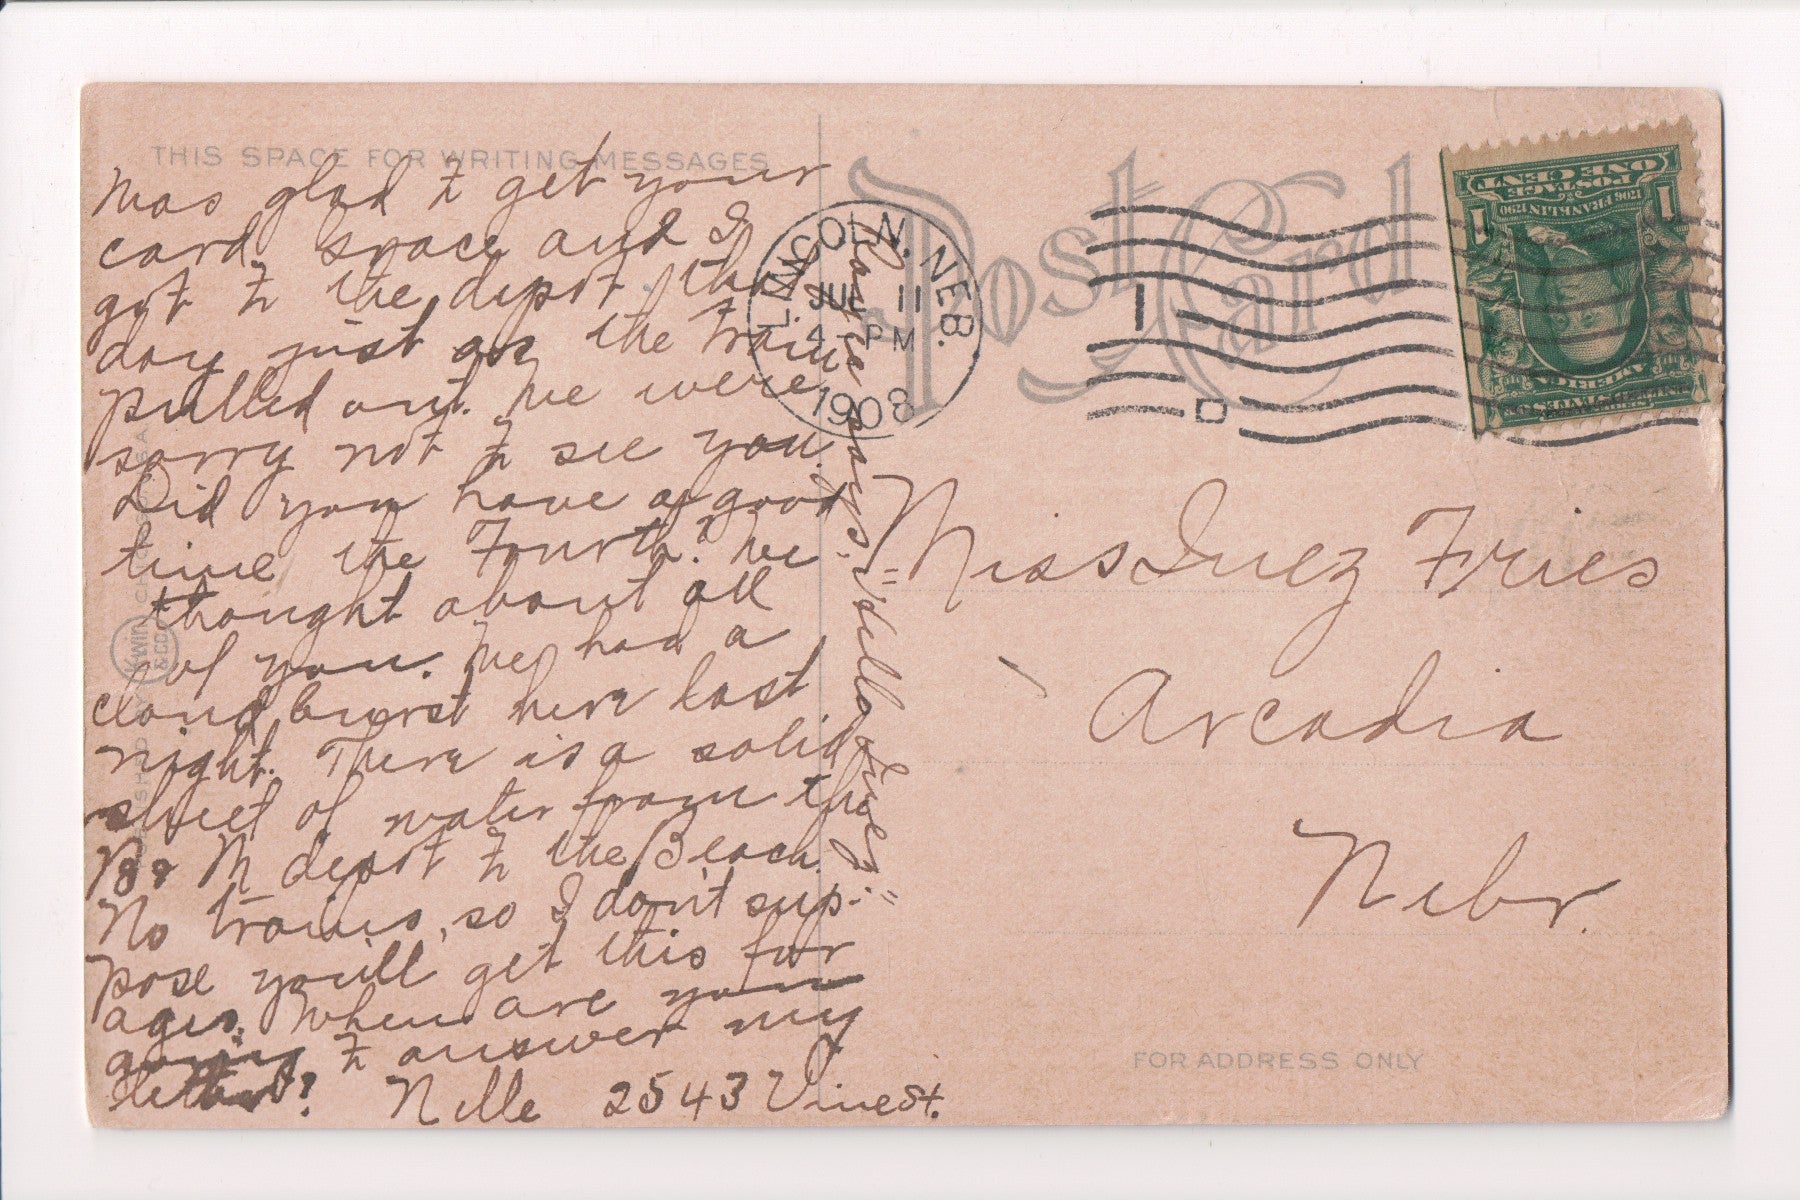 THIS SPACE FOR WRITING MESSAGES
Was glad to get your
card. Grace and I
got to the depot the
day just as the train
pulled out. We were
sorry not to see you.
Did you have a good
time the Fourth? We
thought about all
of you. We had a
cloud burst here last
night. There is a solid
sheet of water from the
B & M depot to the Beach.
No trains, so I don't sup-
pose you'll get this for
ages. When are you
going to answer my
letter? Nelle 2543 Vine St.
Post Card
LINCOLN, NEB.
JUL 11
4 PM
1908
1
ONE CENT
POSTAGE
1706 FRANKLIN 1790
1 1
AMERICA
Miss Inez Fries
Arcadia
Nebr.
FOR ADDRESS ONLY